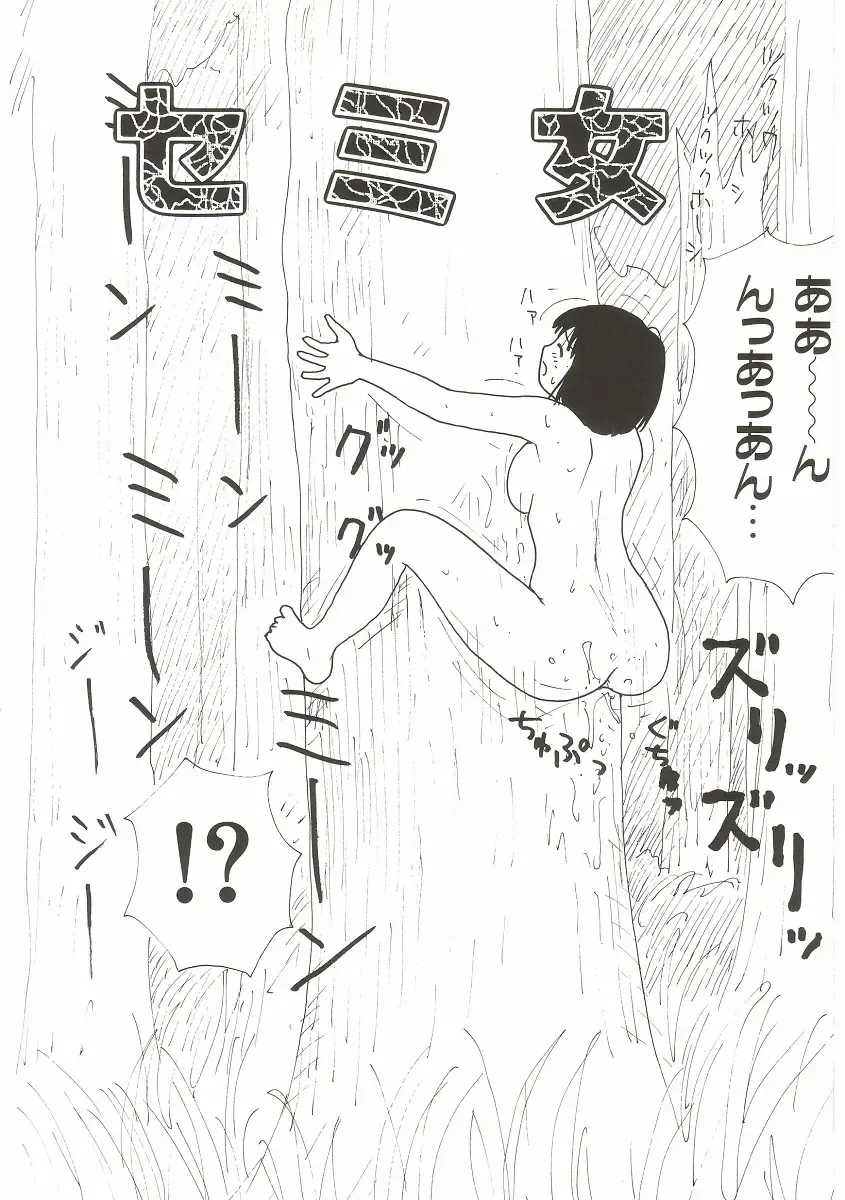 セミ女
ツクツクホーシ
ツクツクホーシ
ああ～～ん
んっあっあん…
ハァ
ハァ
グッ
グッ
ミーン
ミーン
ミーン
ミーン
ジー
ジー
ちゅぷっ
ぐちゅっ
ズリッ
ズリッ
!?